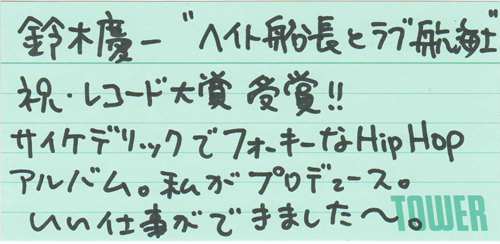 鈴木慶一 "ヘイト船長とラブ航海士"
祝・レコード大賞 受賞!!
サイケデリックでフォーキーなHip Hop
アルバム。私がプロデュース。
いい仕事ができました〜。
TOWER